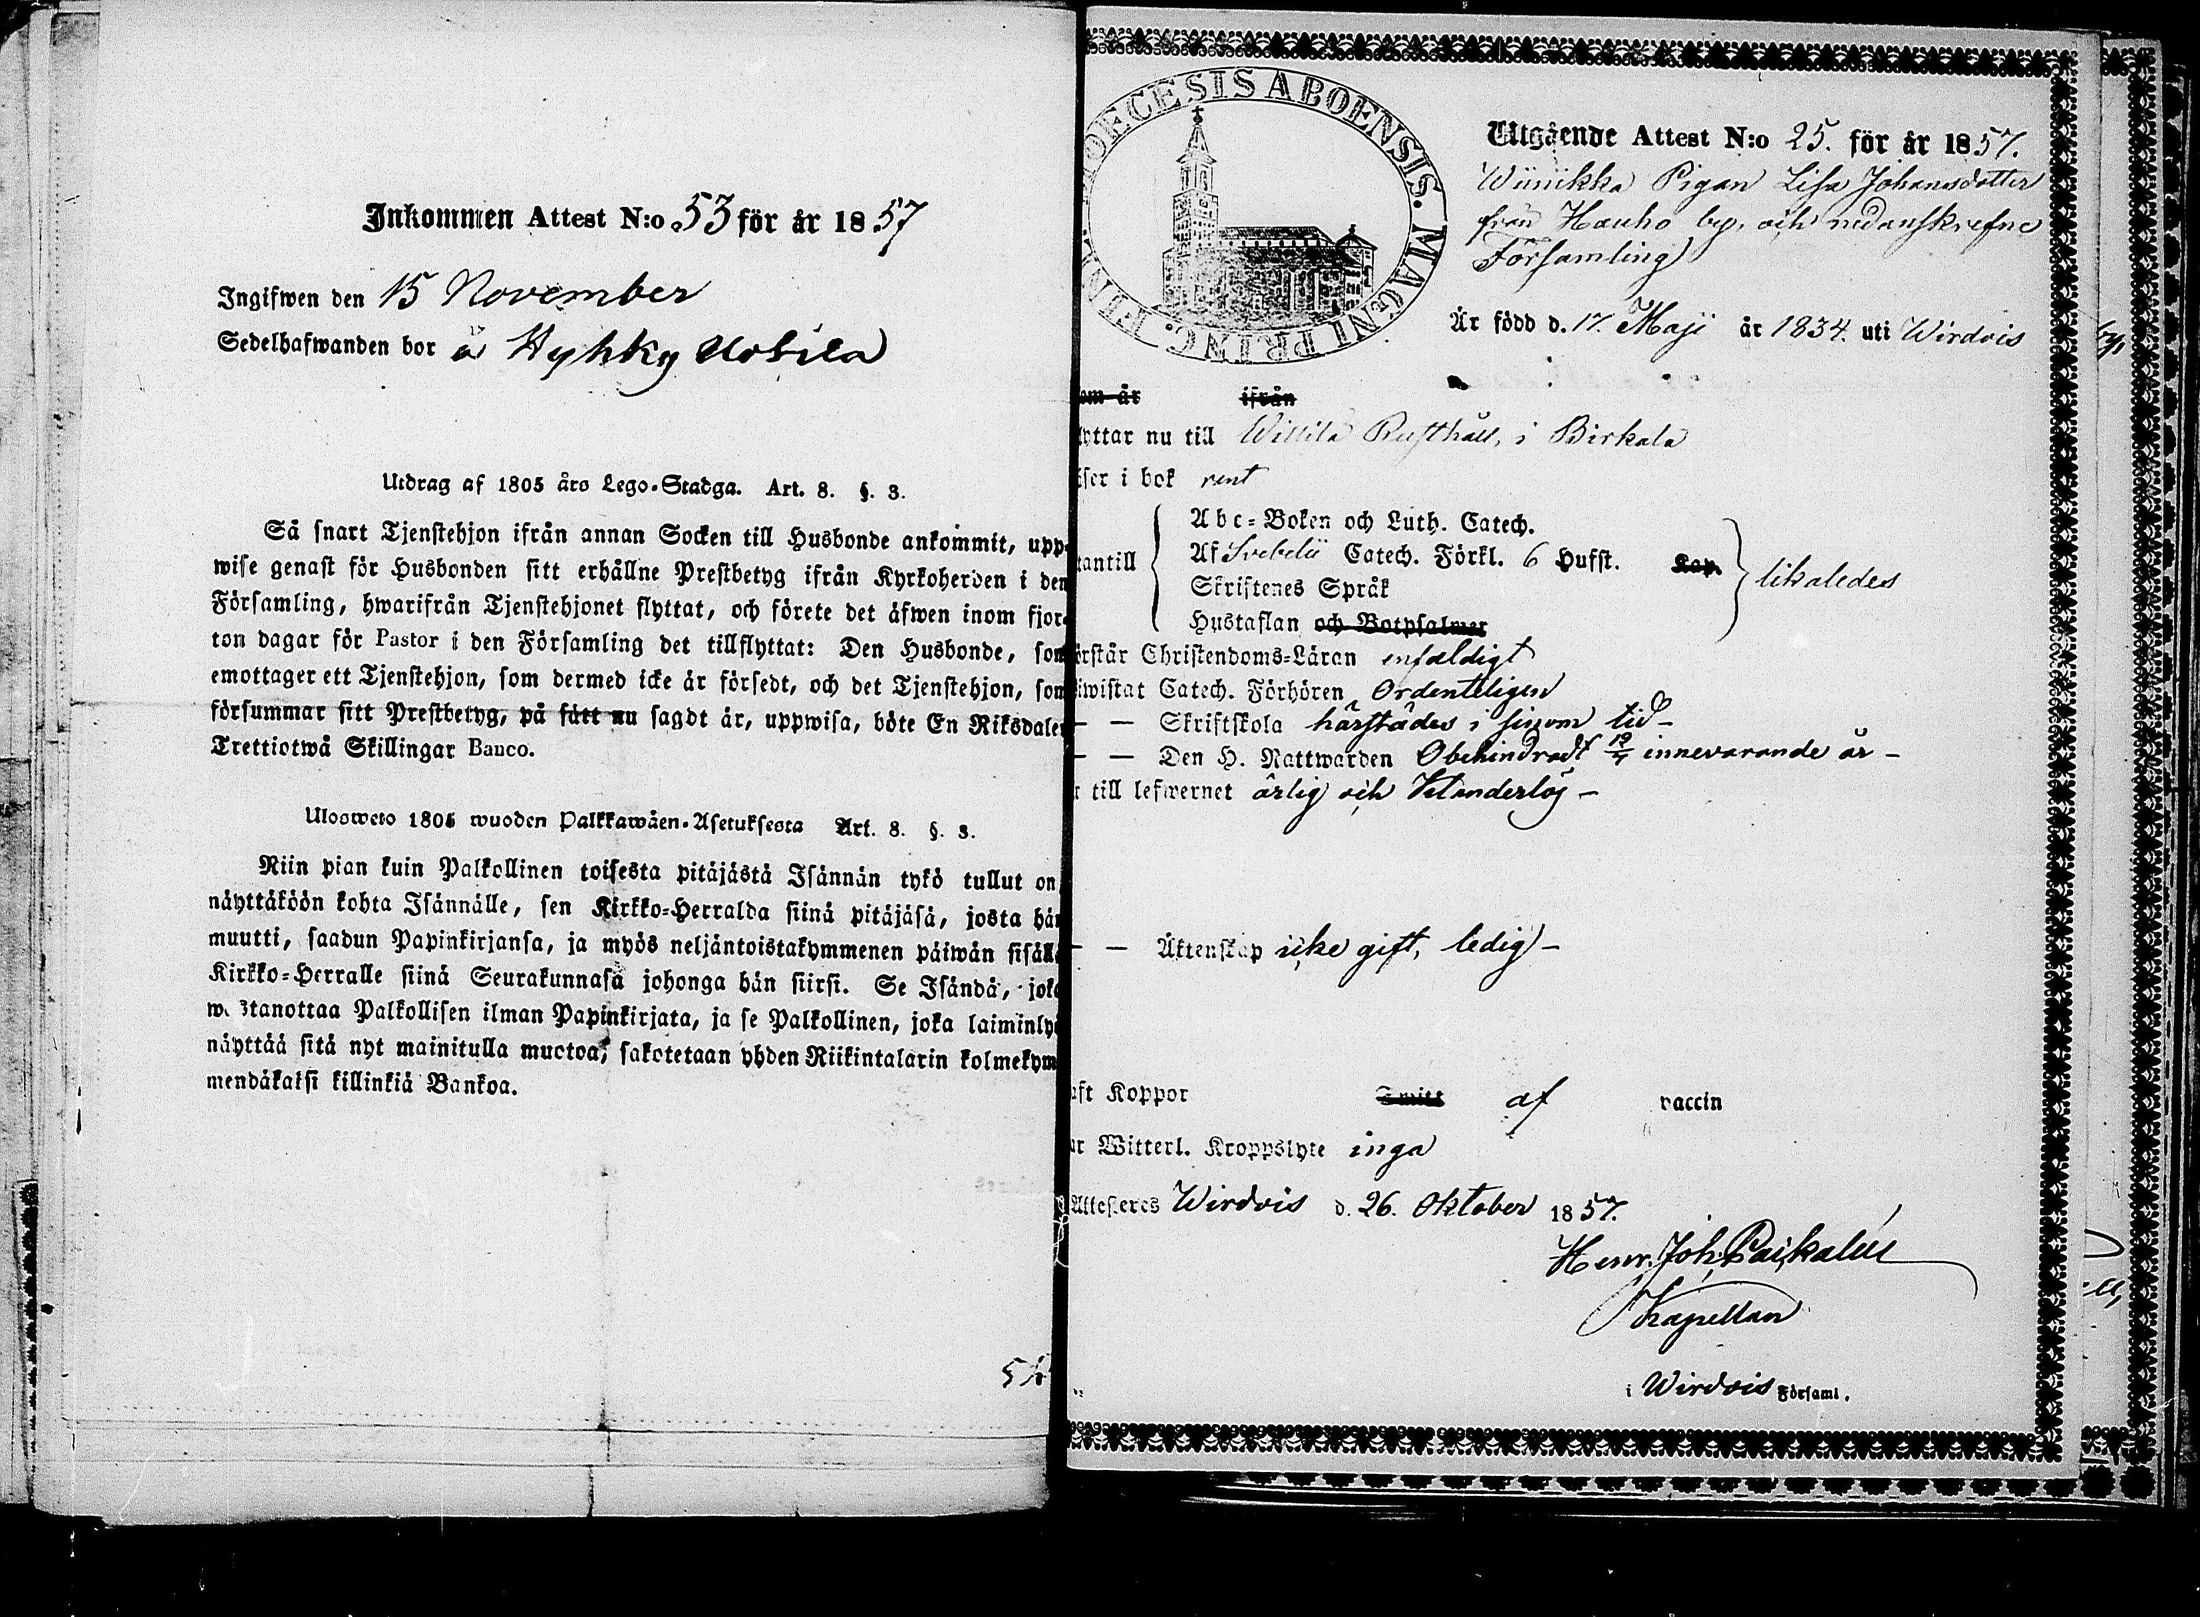 Inkommen Attest N:o 53 för år 1857
Ingifwen den 15 November
Sedelhafwanden bor å Hyhky
Utdrag af 1805 års Lego-Stadga. Art. 8. §. 3.
Så snart Tjenstehjon ifrån annan Socken till Husbonde ankommit, upp-
wise genast för Husbonden sitt erhållne Prestbetyg ifrån Kyrkoherden i den
Församling, hwarifrån Tjenstehjonet flyttat, och förete det äfwen inom fjor-
ton dagar för Pastor i den Församling det tillflyttat: Den Husbonde, som
emottager ett Tjenstehjon, som dermed icke är försedt, och det Tjenstehjon, som
försummar sitt Prestbetyg, på sätt nu sagdt är, uppwisa, böte En Riksdaler
Trettiotwå Skillingar Banco.
Ulosweto 1805 wuoden Palkkawäen-Asetuksesta Art. 8. §. 3.
Niin pian kuin Palkollinen toisesta pitäjästä Isännän tykö tullut on,
näyttäköön kohta Isännälle, sen Kirkko-Herralda siinä pitäjäsä, josta hän
muutti, saadun Papinkirjansa, ja myös neljäntoistakymmenen päiwän sisälä
Kirkko-Herralle siinä Seurakunnasa johonga hän siirsi. Se Isändä, joka
wastanottaa Palkollisen ilman Papinkirjata, ja se Palkollinen, joka laiminlyö
näyttää sitä nyt mainitulla muotoa, sakotetaan yhden Riikintalarin kolmekym-
mendäkaksi killinkiä Bankoa.
DIOECESIS ABOENSIS. MAGNI PRINC.
Utgående Attest N:o 25. för år 1857.
Wiinikka Pigan Lisa Johansdotter
från Hauho by, och nedanskrefne
Församling
Är född d. 17. Maji år 1834. uti Wirdois
om år ifrån
lyttar nu till Willila Rusthåll, i Birkala
iser i bok rent
Abc-Boken och Luth. Catech.
tantill Af Svebelii Catech. Förkl. 6 Hufst. Kap. likaledes
Skriftenes Språk
Hustaflan och Botpsalmer
örstår Christendoms-Läran enfaldigt
iwistat Catech. Förhören Ordenteligen
— — Skriftskola härstädes i sinom tid -
— — Den H. Nattwarden Obehindradt 12/4 innevarande år -
r till lefwernet ärlig och klanderlös -
— — Äktenskap icke gift, ledig -
aft Koppor Smitt af vaccin
ar Witterl. Kroppslyte inga
Attesteres Wirdois d. 26. Oktober 1857.
Henr. Joh.
Kapellan
i Wirdois Församl.